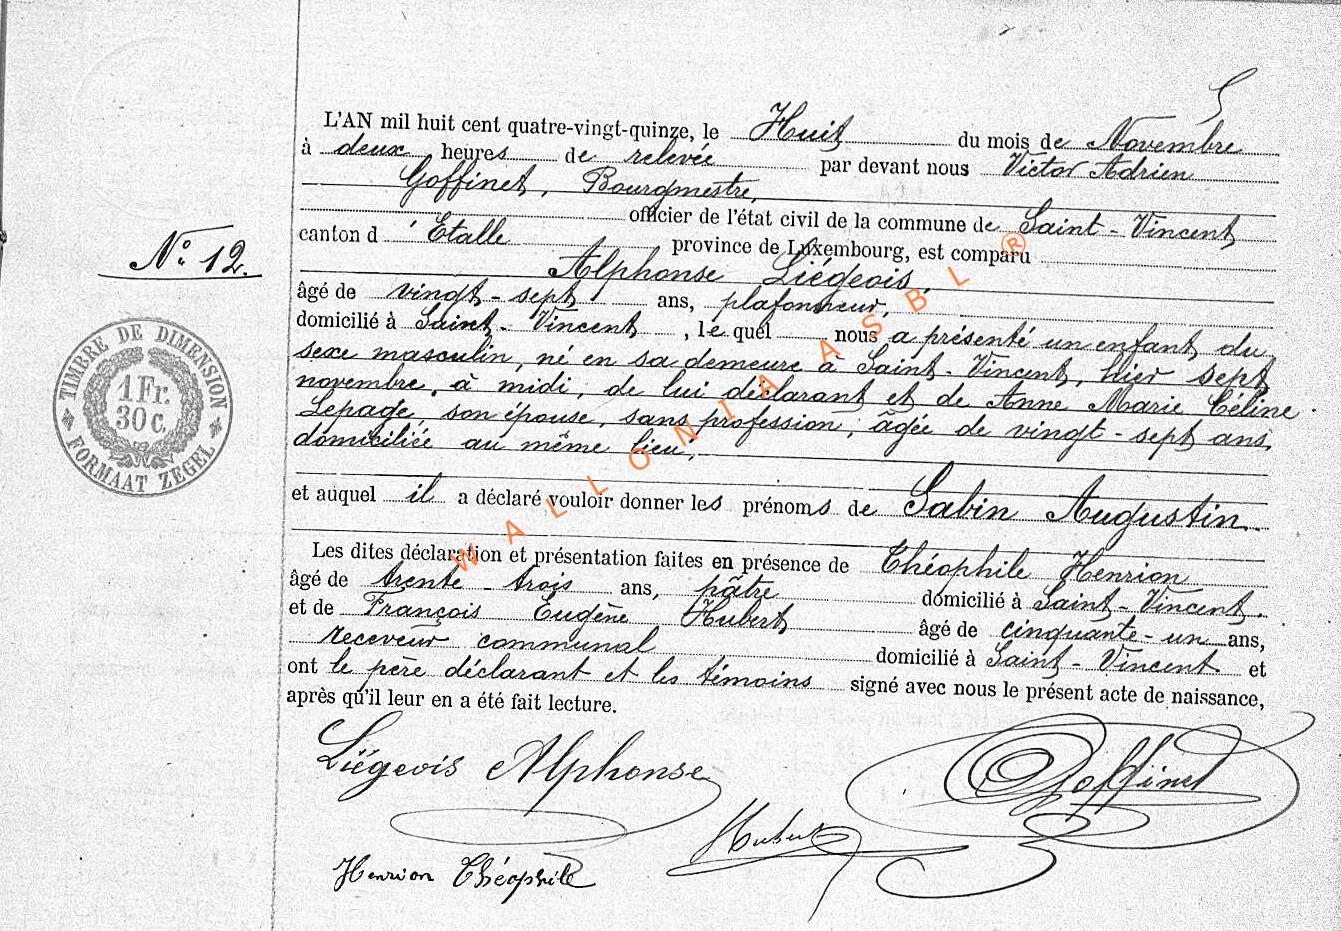 5
L'AN mil huit cent quatre-vingt-quinze, le Huit du mois de Novembre
à deux heures de relevée par devant nous Victor Adrien
Goffinet, Bourgmestre,
officier de l'état civil de la commune de Saint-Vincent
canton d'Etalle province de Luxembourg, est comparu
Alphonse Liégeois,
âgé de vingt-sept ans, plafonneur,
domicilié à Saint-Vincent, lequel nous a présenté un enfant du
sexe masculin, né en sa demeure à Saint-Vincent, hier sept
novembre, à midi, de lui déclarant et de Anne Marie Céline
Lepage, son épouse, sans profession, âgée de vingt-sept ans,
domiciliée au même lieu,
et auquel il a déclaré vouloir donner les prénoms de Sabin Augustin.
Les dites déclaration et présentation faites en présence de Théophile Henrion
âgé de trente-trois ans, pâtre domicilié à Saint-Vincent.
et de François Eugène Hubert âgé de cinquante-un ans,
receveur communal domicilié à Saint-Vincent et
ont le père déclarant et les témoins signé avec nous le présent acte de naissance,
après qu'il leur en a été fait lecture.
Liégeois Alphonse
Goffinet
Hubert
Henrion Théophile
No 12.
TIMBRE DE DIMENSION
1 Fr.
30 c.
FORMAAT ZEGEL
WALLONIA ASBL ®